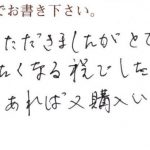 でお書き下さい。
ただきましたがとて
たくなる程でした
あれば又購入い